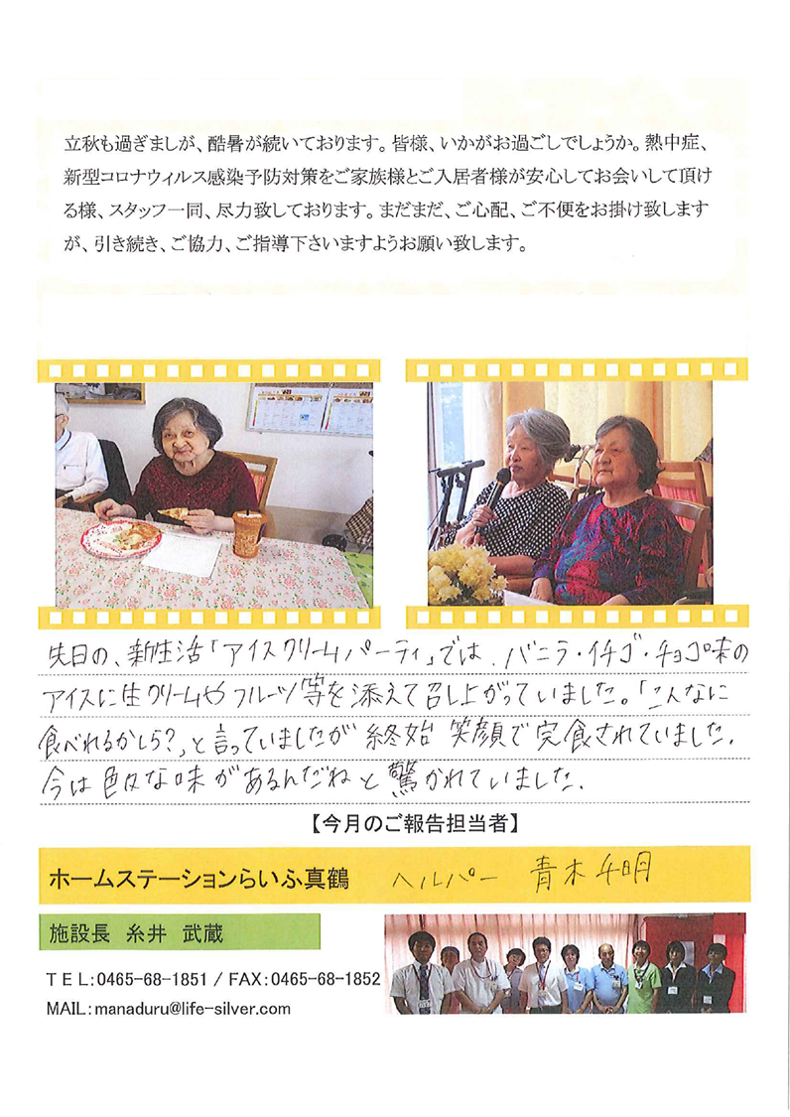 立秋も過ぎましが、酷暑が続いております。皆様、いかがお過ごしでしょうか。熱中症、
新型コロナウィルス感染予防対策をご家族様とご入居者様が安心してお会いして頂け
る様、スタッフ一同、尽力致しております。まだまだ、ご心配、ご不便をお掛け致します
が、引き続き、ご協力、ご指導下さいますようお願い致します。
先日の、新生活「アイスクリームパーティ」では、バニラ・イチゴ・チョコ味の
アイスに生クリームやフルーツ等を添えて召し上がっていました。「こんなに
食べれるかしら?」と言っていましたが終始 笑顔で完食されていました。
今は色々な味があるんだねと驚かれていました。
【今月のご報告担当者】
ホームステーションらいふ真鶴 ヘルパー 青木 千明
施設長 糸井 武蔵
TEL:0465-68-1851 / FAX:0465-68-1852
MAIL:manaduru@life-silver.com